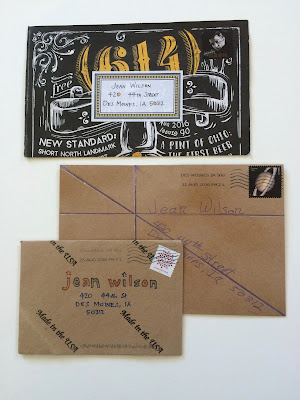 (614)
free
JEAN WILSON
420 44TH STREET
DES MOINES, IA 50312
2016
NEW STANDARD:
SHORT NORTH LANDMARK
A PINT OF OHIO:
THE FIRST BEER
DES MOINES IA 500
Jean Wilson
420 44th Street
50312
Made in the USA
jean wilson
420 44th St
DES MOINES, IA
50312
Made in the USA
Made in the USA